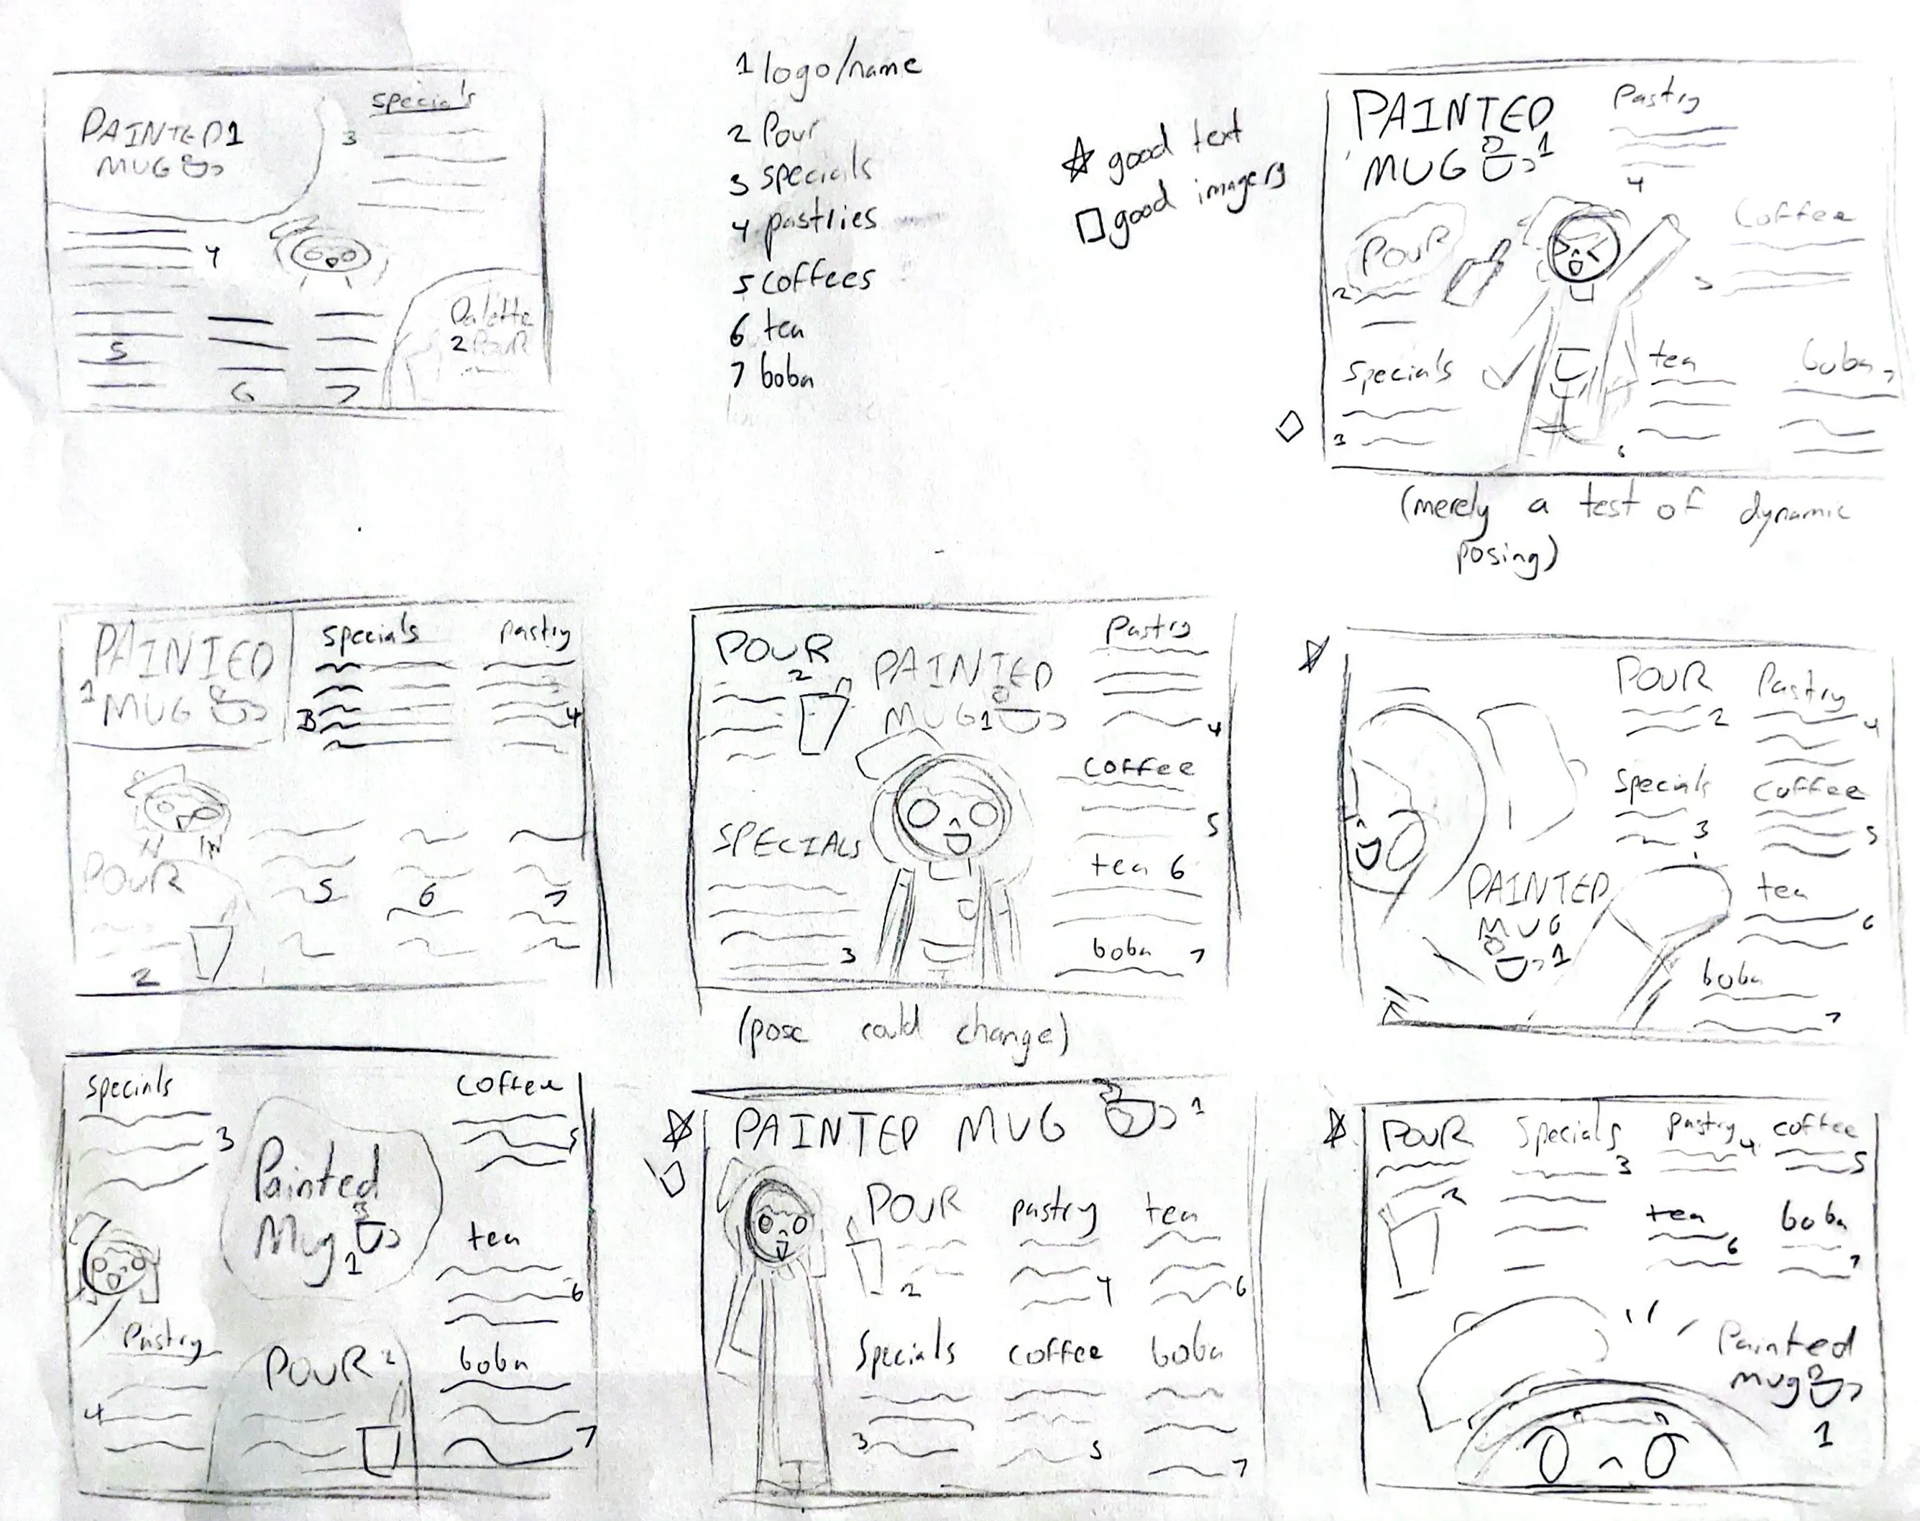 PAINTED 1
MUG
specials
3
4
5
6
7
Palette
2 POUR
1 logo/name
2 Pour
3 specials
4 pastries
5 coffees
6 tea
7 boba
good text
good imagery
PAINTED
MUG 1
Pastry
4
POUR
2
Coffee
5
Specials
3
tea
6
boba 7
(merely a test of dynamic
posing)
PAINTED
1 MUG
specials
3
pastry
4
POUR
2
5
6
7
POUR
2
PAINTED
MUG 1
Pastry
4
Coffee
5
SPECIALS
3
tea 6
boba 7
(pose could change)
POUR
2
Pastry
4
Specials
3
Coffee
5
PAINTED
MUG
1
tea
6
boba
7
Specials
3
Coffee
5
Painted
Mug
1
tea
6
Pastry
4
POUR 2
boba
7
PAINTED MUG 1
POUR
2
pastry
4
tea
6
Specials
3
coffee
5
boba
7
POUR
2
Specials
3
pastry
4
coffee
5
tea
6
boba
7
Painted
mug
1